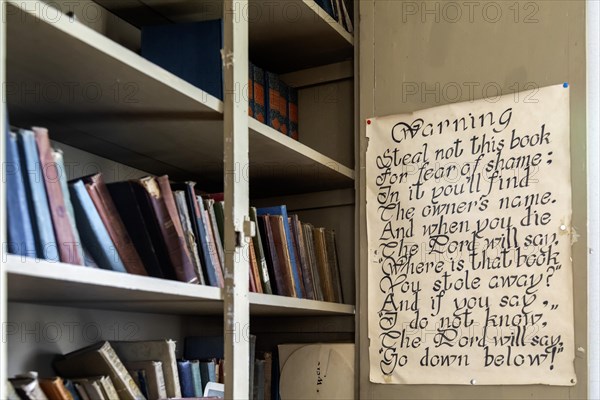 Warning
Steal not this book
For fear of shame:
In it you'll find
The owner's name.
And when you die
The Lord will say,
"Where is that book
You stole away?"
And if you say,
"I do not know,"
The Lord will say,
"Go down below!"